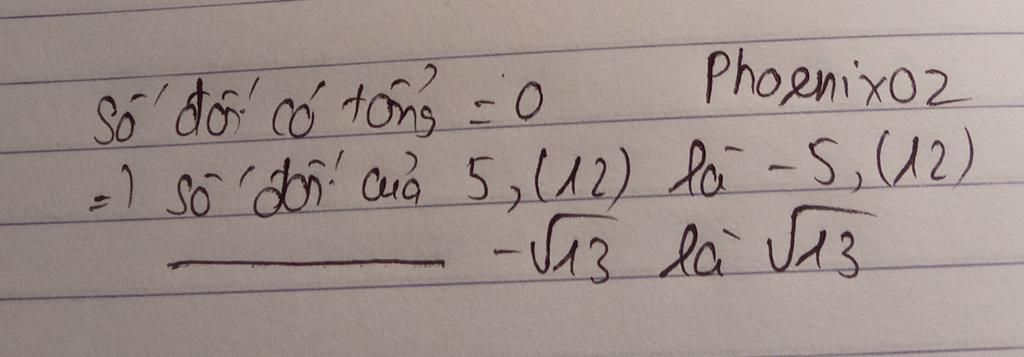 Số đối có tổng = 0 Phoenix02
=) số đối của 5,(12) là -5,(12)
——— -√13 là √13